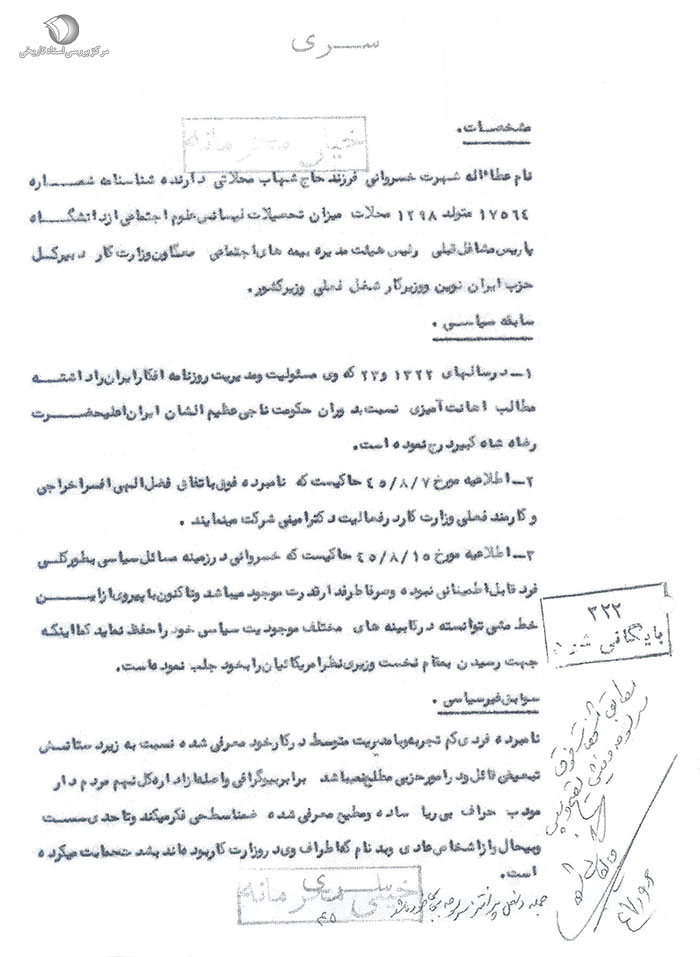 مرکز بررسی اسناد تاریخی
سری
خیلی محرمانه
مشخصات.
نام عطاءاله شهرت خسروانی فرزند حاج شهاب محلاتی دارنده شناسنامه شماره
۱۷۵۶۴ متولد ۱۲۹۸ محلات میزان تحصیلات لیسانس علوم اجتماعی از دانشگاه
پاریس مشاغل قبلی رئیس هیئت مدیره بیمه های اجتماعی معاون وزارت کار دبیر کل
حزب ایران نوین و وزیر کار شغل فعلی وزیر کشور.
سابقه سیاسی.
۱- در سالهای ۱۳۲۲ و ۲۳ که وی مسئولیت و مدیریت روزنامه افکار ایران را داشته
مطالب اهانت آمیزی نسبت بدوران حکومت ناجی عظیم الشان ایران اعلیحضرت
رضا شاه کبیر درج نموده است.
۲- اطلاعیه مورخ ۴۵/۸/۷ حاکیست که نامبرده فوق باتفاق فضل الهی افسر اخراجی
و کارمند فعلی وزارت کار در فعالیت دکتر امینی شرکت مینمایند.
۳- اطلاعیه مورخ ۴۵/۸/۱۵ حاکیست که خسروانی در زمینه مسائل سیاسی بطور کلی
فرد قابل اطمینانی نبوده و صرفا طرفدار قدرت موجود میباشد و تاکنون با پیروی از این
خط مشی توانسته در کابینه های مختلف موجودیت سیاسی خود را حفظ نماید کما اینکه
جهت رسیدن بمقام نخست وزیری نظر امریکائیان را بخود جلب نموده است.
سوابق غیر سیاسی.
نامبرده فردی کم تجربه و با مدیریت متوسط در کار خود معرفی شده نسبت به زیر دستانش
تبعیض قائل و در امور حزبی مطلع نمیباشد برابر بیوگرافی واصله از اداره کل نهم مردم دار
مودب حراف بی ریا ساده و مطیع معرفی شده ضمنا سطحی فکر میکند و تا حدی سست
و بیحال و از اشخاص عادی و بدنام که اطراف وی در وزارت کار بوده اند بشدت حمایت میکرده
است.
۳۲۲
بایگانی شود
سری
خیلی محرمانه